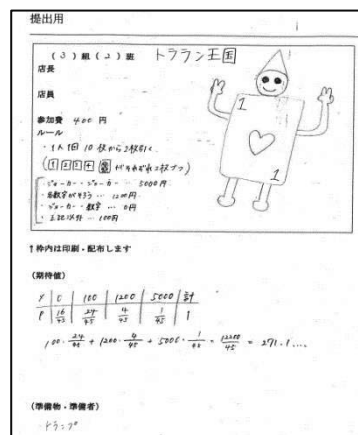 提出用
(3)組(2)班 トララン王国
店長
店員
参加費 400 円
ルール
・1人1回 10枚から2枚引く
(1 2 3 4 がそれぞれ2枚ずつ)
・ジョーカー・ジョーカー … 5000円
・同数字がそろう … 1200円
・ジョーカー・数字 … 0円
・上記以外 … 100円
1
1
↑枠内は印刷・配布します
(期待値)
X 0 100 1200 5000 計
P 16/45 24/45 4/45 1/45 1
100・24/45 + 1200・4/45 + 5000・1/45 = 12200/45 = 271.1....
(準備物・準備者)
トランプ